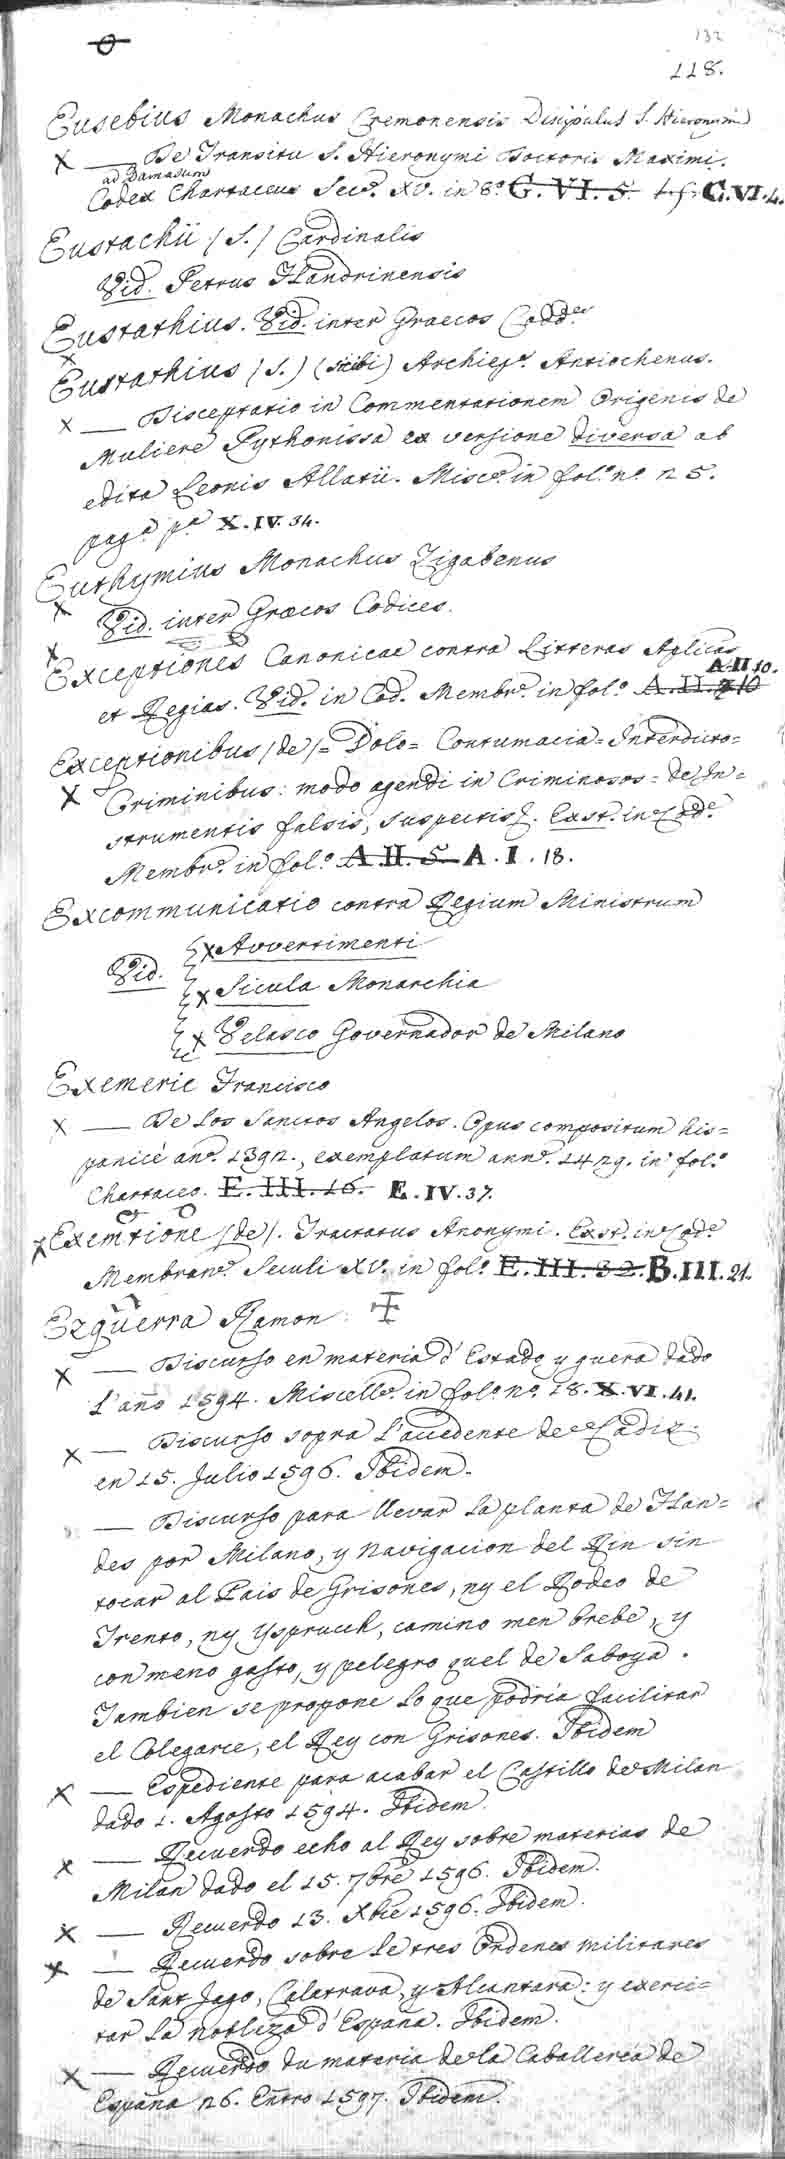 132
118.
Eusebius Monachus Cremonensis Disipulus S. Hieronymi
x — De Transitu S. Hieronymi Doctoris Maximi.
ad Damasum
Codex Chartaceus Sec.º XV. in 8º G. VI. 5. C. VI. 4.
Eustachii (S.) Cardinalis
Vid. Petrus Handrinensis
Eustathius. Vid. inter Graecos Codd.es
x
Eustathius (S.) (sicibi) Archiep.s Antiochenus.
x — Disceptatio in Commentationem Origenis de
Muliere Pythonissa ex versione diversa ab
edita Leonis Allatii. Misc.º in fol.º nº. 25.
pag.ª p.ª X. IV. 34.
Euthymius Monachus Zigabenus
x Vid. inter Græcos Codices.
x
Exceptiones Canonicae contra Litteras Aplicas
A. II 10.
et Regias. Vid. in Cod. Membr.º in fol.º A. II. 10
Exceptionibus (de) = Dolo = Contumacia = Interdicto =
x Criminibus: modo agendi in Criminosos = de In =
strumentis falsis, suspectis &. Exst. in Cod.e
Membr.º in fol.º A. II. 5. A. I. 18.
Excommunicatio contra Regium Ministrum
x Avvertimenti
Vid.
x Sicula Monarchia
x Velasco Governador de Milano
Exemeric Francisco
x — De Los Sanctos Angelos. Opus compositum his=
panicè anº. 1392., exemplatum annº. 1429. in fol.º
Chartaceo. E. III. 16. E. IV. 37.
x Exemtione (de). Tractatus Anonymi. Exst. in Cod.e
Membran.º Seculi XV. in fol.º E. III. 32. B. III. 21.
Ezquerra Ramon
x — Discurso en materia d' Estado y guera dado
l'año 1594. Miscell.º in fol.º nº. 18. X. VI. 41.
x — Discurso sopra l'accedente de Cadiz
en 15. Julio 1596. Ibidem.
— Discurso para llevar la planta de Flan=
des por Milano, y Navigacion del Rin sin
tocar al Pais de Grisones, ny el Rodeo de
Trento, ny Yspruch, camino men brebe, y
con meno gasto, y pelegro quel de Saboya.
Tambien se propone lo que podria facilitar
el Colegarce, el Rey con Grisones. Ibidem
x — Espediente para acabar el Castillo de Milan
dado 1. Agosto 1594. Ibidem.
x — Recuerdo echo al Rey sobre materias de
Milan dado el 15. 7bre 1596. Ibidem.
x — Recuerdo 13. Xbre 1596. Ibidem.
x — Recuerdo sobre le tres Ordenes militares
de Sant Jago, Calatrava, y Alcantara: y exerci=
tar la nobleza d' España. Ibidem.
x — Recuerdo du materia de la Caballeria de
España 26. Enero 1597. Ibidem.